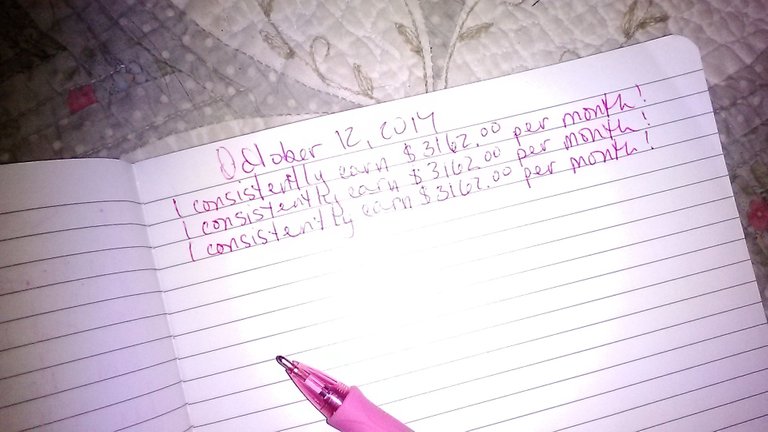 October 12, 2014
I consistently earn $3162.00 per month!
I consistently earn $3162.00 per month!
I consistently earn $3162.00 per month!